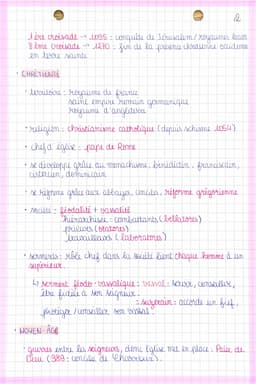 ②
1ère croisade → 1095 : conquête de Jérusalem / royaumes latins
8ème croisade → 1270 : fin de la présence chrétienne occidentale
en terre sainte
• CHRÉTIENTÉ
• territoires : royaume de france
saint empire romain germanique
royaume d'angleterre
• religion : christianisme catholique (depuis schisme 1054)
• chef d'église : pape de Rome
• se développe grâce au monachisme, bénédictin, franciscain,
cistercien, dominicain
• se réforme grâce aux abbayes, réforme grégorienne
• société - féodalité + vassalité
hiérarchisée : combattants (bellatores)
prieurs (oratores)
travailleurs (laboratores)
• serments : rôle chef dans la société lient chaque homme à un
supérieur.
↳ serment féodo-vassalique : vassal : servir, conseiller,
être fidèle à son seigneur.
: suzerain : accorde un fief,
protéger / conseiller son vassal
• MOYEN-ÂGE
• guerres entre les seigneurs, donc Église met en place : Paix de
Dieu (989 : concile de Charroux).